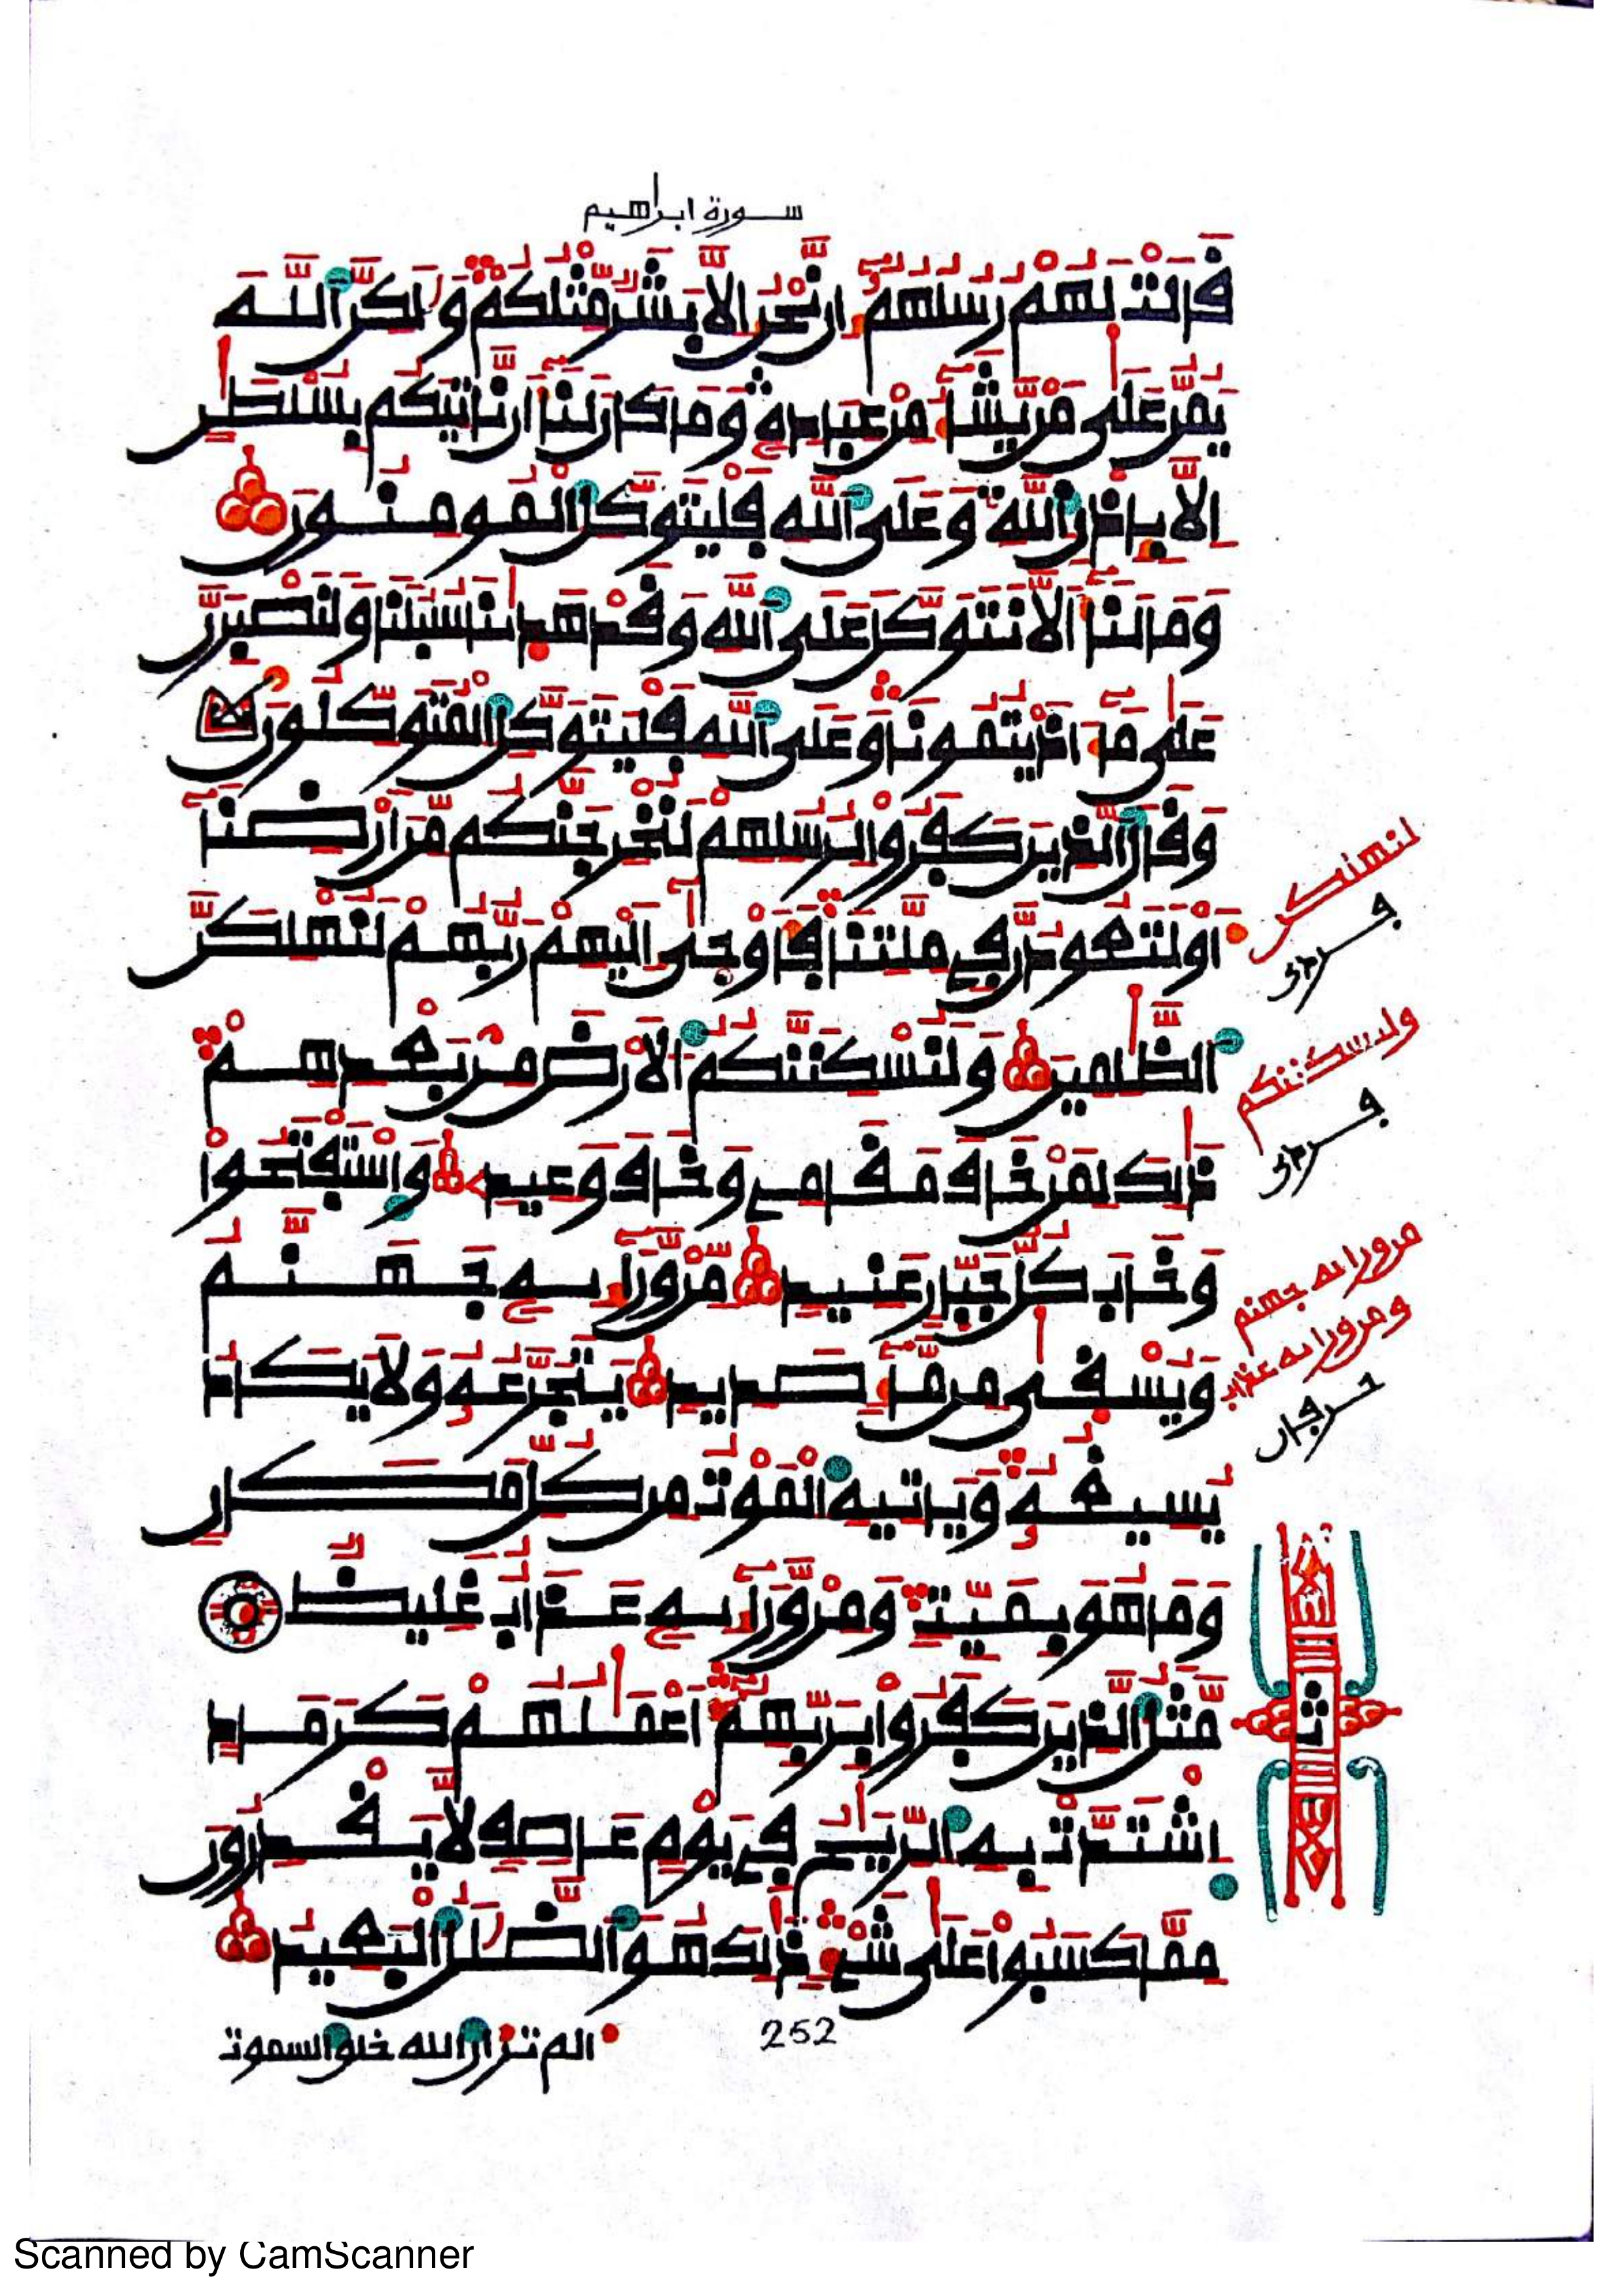 سورة ابراهيم
قَالَتْ لَهُمْ رُسُلُهُمُ إِن نَّحْنُ إِلَّا بَشَرٌ مِّثْلُكُمْ وَلَٰكِنَّ اَللَّهَ
يَمُنُّ عَلَىٰ مَنْ يَّشَآءُ مِنْ عِبَادِهِ وَمَا كَانَ لَنَآ أَن نَّاتِيَكُم بِسُلْطَٰنٍ
اِلَّا بِإِذْنِ اِللَّهِ وَعَلَى اَللَّهِ فَلْيَتَوَكَّلِ اِلْمُومِنُونَ
وَمَا لَنَآ أَلَّا نَتَوَكَّلَ عَلَى اَللَّهِ وَقَدْ هَدَىٰنَا سُبُلَنَا وَلَنَصْبِرَنَّ
عَلَىٰ مَآ ءَاذَيْتُمُونَا وَعَلَى اَللَّهِ فَلْيَتَوَكَّلِ اِلْمُتَوَكِّلُونَ
وَقَالَ اَلَّذِينَ كَفَرُوا لِرُسُلِهِمْ لَنُخْرِجَنَّكُم مِّنَ ارْضِنَآ
أَوْ لَتَعُودُنَّ فِي مِلَّتِنَا فَأَوْحَىٰٓ إِلَيْهِمْ رَبُّهُمْ لَنُهْلِكَنَّ
اَلظَّٰلِمِينَ وَلَنُسْكِنَنَّكُمُ اُلَارْضَ مِنْ بَعْدِهِمْ
ذَٰلِكَ لِمَنْ خَافَ مَقَامِي وَخَافَ وَعِيدِ وَاسْتَفْتَحُواْ
وَخَابَ كُلُّ جَبَّارٍ عَنِيدٍ مِّنْ وَّرَآئِهِ جَهَنَّمُ
وَيُسْقَىٰ مِن مَّآءٍ صَدِيدٍ يَتَجَرَّعُهُ وَلَا يَكَادُ
يُسِيغُهُ وَيَاتِيهِ اِلْمَوْتُ مِن كُلِّ مَكَانٍ
وَمَا هُوَ بِمَيِّتٍ وَمِنْ وَّرَآئِهِ عَذَابٌ غَلِيظٌ
مَّثَلُ اُلَّذِينَ كَفَرُواْ بِرَبِّهِمُ أَعْمَٰلُهُمْ كَرَمَادٍ
اِشْتَدَّتْ بِهِ اِلرِّيَٰحُ فِي يَوْمٍ عَاصِفٍ لَّا يَقْدِرُونَ
مِمَّا كَسَبُواْ عَلَىٰ شَيْءٍ ذَٰلِكَ هُوَ اَلضَّلَٰلُ اُلْبَعِيدُ
لنهلكن
ولنسكننكم
من ورائه جهنم
ومن ورائه عذاب
حرفان
ث
252
الم تر ان الله خلق السموت
Scanned by CamScanner